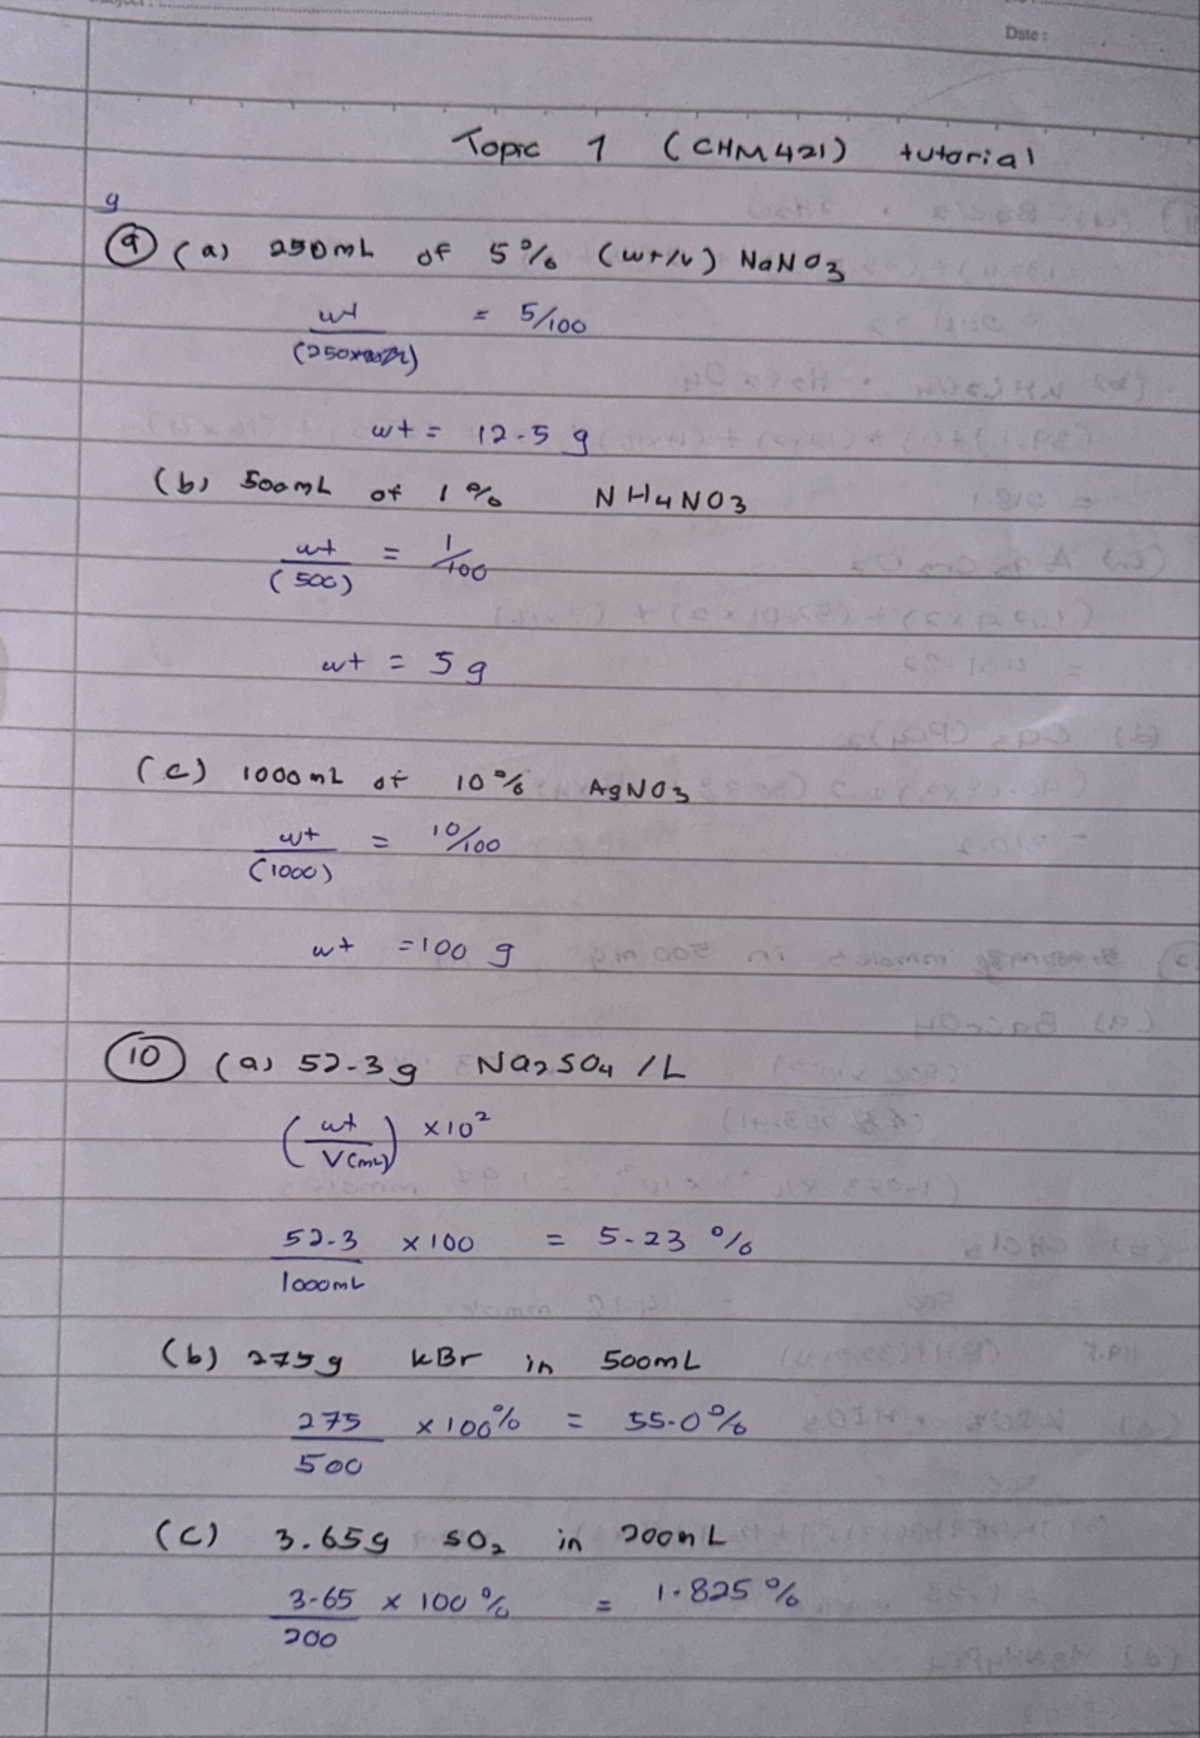 Date :
Topic 1 (CHM421) tutorial
g
9 (a) 250mL of 5% (wt/v) NaNO3
wt = 5/100
(250)
wt = 12.5 g
(b) 500mL of 1% NH4NO3
wt = 1/100
(500)
wt = 5 g
(c) 1000mL of 10% AgNO3
wt = 10/100
(1000)
wt = 100 g
10 (a) 52.3g Na2SO4 /L
(wt / V(mL)) × 10²
52.3 × 100 = 5.23 %
1000mL
(b) 275g KBr in 500mL
275 × 100% = 55.0%
500
(c) 3.65g SO2 in 200mL
3.65 × 100 % = 1.825 %
200